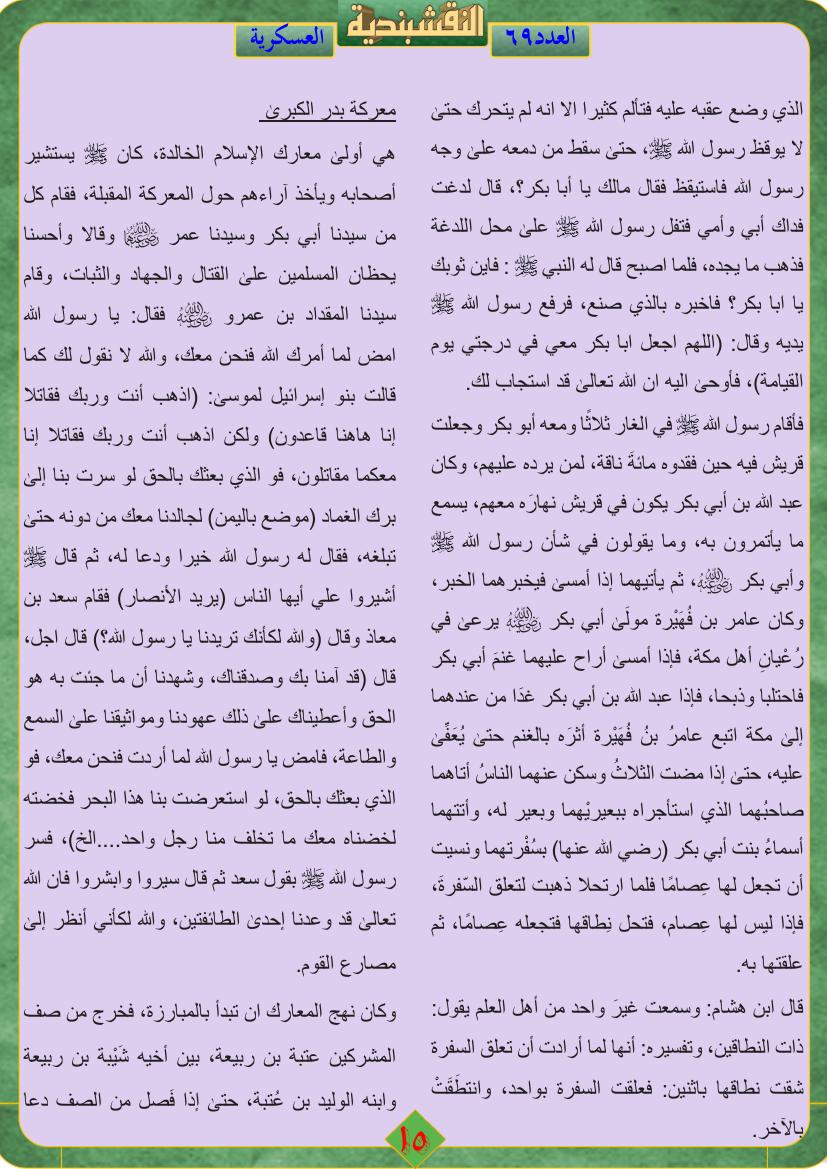 العدد٦٩
النقشبندية
العسكرية
الذي وضع عقبه عليه فتألم كثيرا الا انه لم يتحرك حتىٰ
لا يوقظ رسول الله ﷺ، حتىٰ سقط من دمعه علىٰ وجه
رسول الله فاستيقظ فقال مالك يا أبا بكر؟، قال لدغت
فداك أبي وأمي فتفل رسول الله ﷺ علىٰ محل اللدغة
فذهب ما يجده، فلما اصبح قال له النبي ﷺ : فاين ثوبك
يا ابا بكر؟ فاخبره بالذي صنع، فرفع رسول الله ﷺ
يديه وقال: (اللهم اجعل ابا بكر معي في درجتي يوم
القيامة)، فأوحىٰ اليه ان الله تعالىٰ قد استجاب لك.
فأقام رسول الله ﷺ في الغار ثلاثًا ومعه أبو بكر وجعلت
قريش فيه حين فقدوه مائةَ ناقة، لمن يرده عليهم، وكان
عبد الله بن أبي بكر يكون في قريش نهارَه معهم، يسمع
ما يأتمرون به، وما يقولون في شأن رسول الله ﷺ
وأبي بكر رضي الله عنه، ثم يأتيهما إذا أمسىٰ فيخبرهما الخبر،
وكان عامر بن فُهَيْرة مولَىٰ أبي بكر رضي الله عنه يرعىٰ في
رُعْيانِ أهل مكة، فإذا أمسىٰ أراح عليهما غنمَ أبي بكر
فاحتلبا وذبحا، فإذا عبد الله بن أبي بكر غدَا من عندهما
إلىٰ مكة اتبع عامرُ بنُ فُهَيْرة أثرَه بالغنم حتىٰ يُعَفِّىٰ
عليه، حتىٰ إذا مضت الثلاثُ وسكن عنهما الناسُ أتاهما
صاحبُهما الذي استأجراه ببعيريْهما وبعير له، وأتتهما
أسماءُ بنت أبي بكر (رضي الله عنها) بسُفْرتهما ونسيت
أن تجعل لها عِصامًا فلما ارتحلا ذهبت لتعلق السّفرةَ،
فإذا ليس لها عِصام، فتحل نِطاقها فتجعله عِصامًا، ثم
علقتها به.
قال ابن هشام: وسمعت غيرَ واحد من أهل العلم يقول:
ذات النطاقين، وتفسيره: أنها لما أرادت أن تعلق السفرة
شقت نطاقها باثنين: فعلقت السفرة بواحد، وانتطَقَتْ
بالآخر.
معركة بدر الكبرىٰ
هي أولىٰ معارك الإسلام الخالدة، كان ﷺ يستشير
أصحابه ويأخذ آراءهم حول المعركة المقبلة، فقام كل
من سيدنا أبي بكر وسيدنا عمر رضي الله عنهما وقالا وأحسنا
يحظان المسلمين علىٰ القتال والجهاد والثبات، وقام
سيدنا المقداد بن عمرو رضي الله عنه فقال: يا رسول الله
امض لما أمرك الله فنحن معك، والله لا نقول لك كما
قالت بنو إسرائيل لموسىٰ: (اذهب أنت وربك فقاتلا
إنا هاهنا قاعدون) ولكن اذهب أنت وربك فقاتلا إنا
معكما مقاتلون، فو الذي بعثك بالحق لو سرت بنا إلىٰ
برك الغماد (موضع باليمن) لجالدنا معك من دونه حتىٰ
تبلغه، فقال له رسول الله خيرا ودعا له، ثم قال ﷺ
أشيروا علي أيها الناس (يريد الأنصار) فقام سعد بن
معاذ وقال (والله لكأنك تريدنا يا رسول الله؟) قال اجل،
قال (قد آمنا بك وصدقناك، وشهدنا أن ما جئت به هو
الحق وأعطيناك علىٰ ذلك عهودنا ومواثيقنا علىٰ السمع
والطاعة، فامض يا رسول الله لما أردت فنحن معك، فو
الذي بعثك بالحق، لو استعرضت بنا هذا البحر فخضته
لخضناه معك ما تخلف منا رجل واحد....الخ)، فسر
رسول الله ﷺ بقول سعد ثم قال سيروا وابشروا فان الله
تعالىٰ قد وعدنا إحدىٰ الطائفتين، والله لكأني أنظر إلىٰ
مصارع القوم.
وكان نهج المعارك ان تبدأ بالمبارزة، فخرج من صف
المشركين عتبة بن ربيعة، بين أخيه شَيْبة بن ربيعة
وابنه الوليد بن عُتبة، حتىٰ إذا فَصل من الصف دعا
١٥